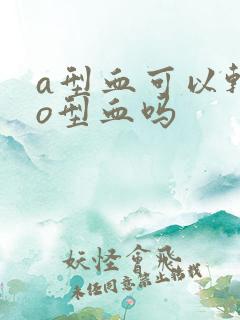 a型血可以
o型血吗
妖怪会飞
未经同意禁止转载